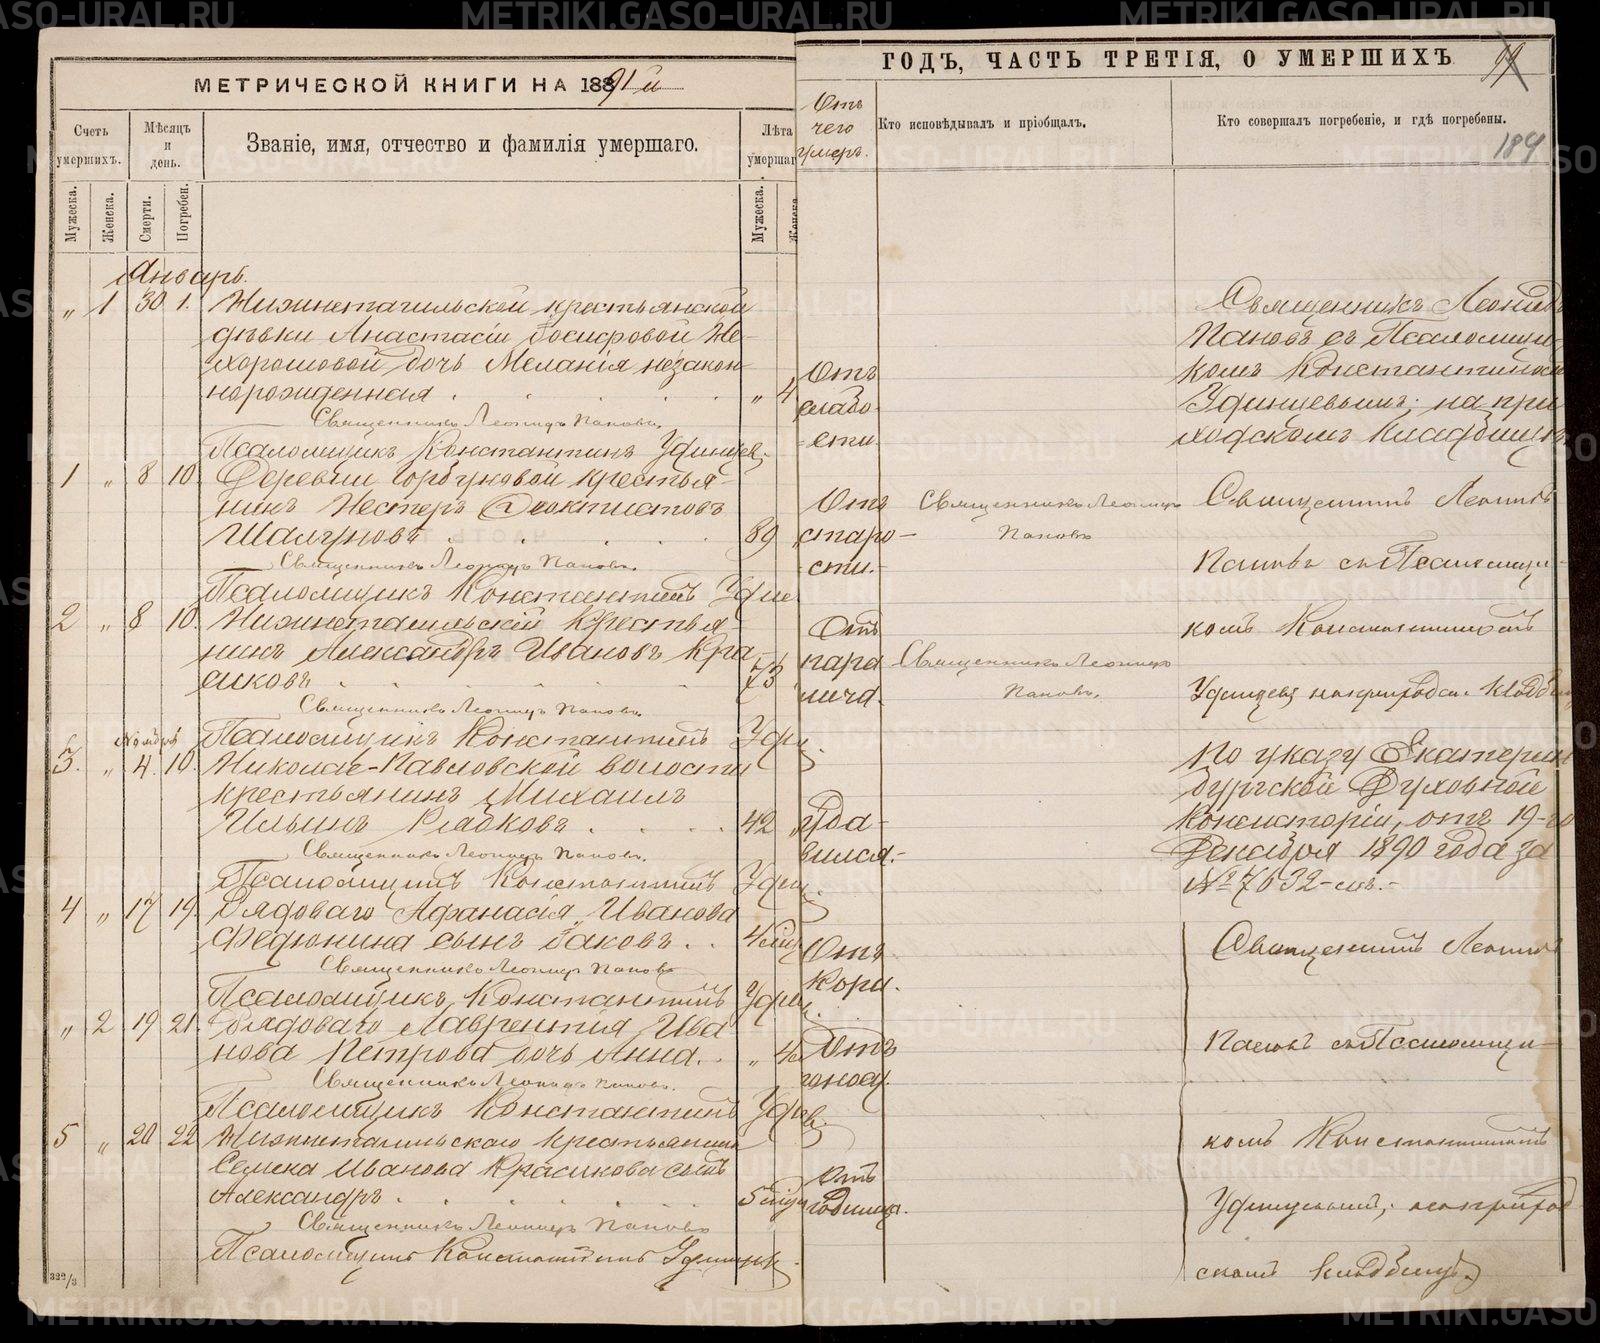 МЕТРИЧЕСКОЙ КНИГИ НА 1891 й
Счетъ умершихъ.
Мѣсяцъ и день.
Званіе, имя, отчество и фамилія умершаго.
Лѣта умершаг
Мужеска.
Женска.
Смерти.
Погребен.
Мужеска.
Женска.
Январь.
„ 1 30 1. Нижнетагильской крестьянской
дѣвки Анастасіи Іосифовой Не-
хорошовой дочь Меланія незакон-
норожденная . „ 4
Священникъ Леонидъ Пановъ.
Псаломщикъ Константинъ Удинцев.
1 „ 8 10. Деревни Горбуновой крестья-
нинъ Нестеръ Ѳеоктистовъ
Шалуновъ . 89 „
Священникъ Леонидъ Пановъ.
Псаломщикъ Константинъ Удин.
2 „ 8 10. Нижнетагильскій крестья-
нинъ Александръ Ивановъ Кра-
сиковъ . 73 „
Священникъ Леонидъ Пановъ.
Псаломщикъ Константинъ Удин.
Ноября
3. „ 4. 10. Николае-Павловской волости
крестьянинъ Михаилъ
Ильинъ Рябковъ . 42 „
Священникъ Леонидъ Пановъ.
Псаломщикъ Константинъ Удин.
4 „ 17 19. Рядоваго Афанасія Иванова
Федюнина сынъ Іаковъ . .
Священникъ Леонидъ Пановъ
Псаломщикъ Константинъ Удин.
„ 2 19 21. Рядоваго Лаврентія Ива
нова Петрова дочь Анна. .
Священникъ Леонидъ Пановъ.
Псаломщикъ Константинъ
5 „ 20 22 Нижнетагильскаго крестьянина
Семена Иванова Красикова сынъ
Александръ .
Священникъ Леонидъ Пановъ
Псаломщикъ Константинъ Удинцевъ
322/3
ГОДЪ, ЧАСТЬ ТРЕТІЯ, О УМЕРШИХЪ
184
Отъ чего умеръ.
Кто исповѣдывалъ и пріобщалъ.
Кто совершалъ погребеніе, и гдѣ погребены.
Отъ
слабо-
сти
Священникъ Леонидъ
Пановъ съ Псаломщи-
комъ Константиномъ
Удинцевымъ; на при
ходскомъ кладбищѣ
Отъ
старо-
сти.
Священникъ Леонидъ
Пановъ
Священникъ Леонидъ
Пановъ съ Псаломщи-
Отъ
пара
лича.
Священникъ Леонидъ
Пановъ.
комъ Константиномъ
По указу Екатерин
бургской Духовной
Консисторіи, отъ 19-го
Декабря 1890 года за
№ 7632-мъ.-
Уда-
вился.-
Отъ
кори.
Священникъ Леонидъ
Отъ
Пановъ съ Псаломщи-
комъ Константиномъ
Отъ
родимца.
Удинцевымъ; на приход
скомъ кладбищѣ
METRIKI.GASO-URAL.RU